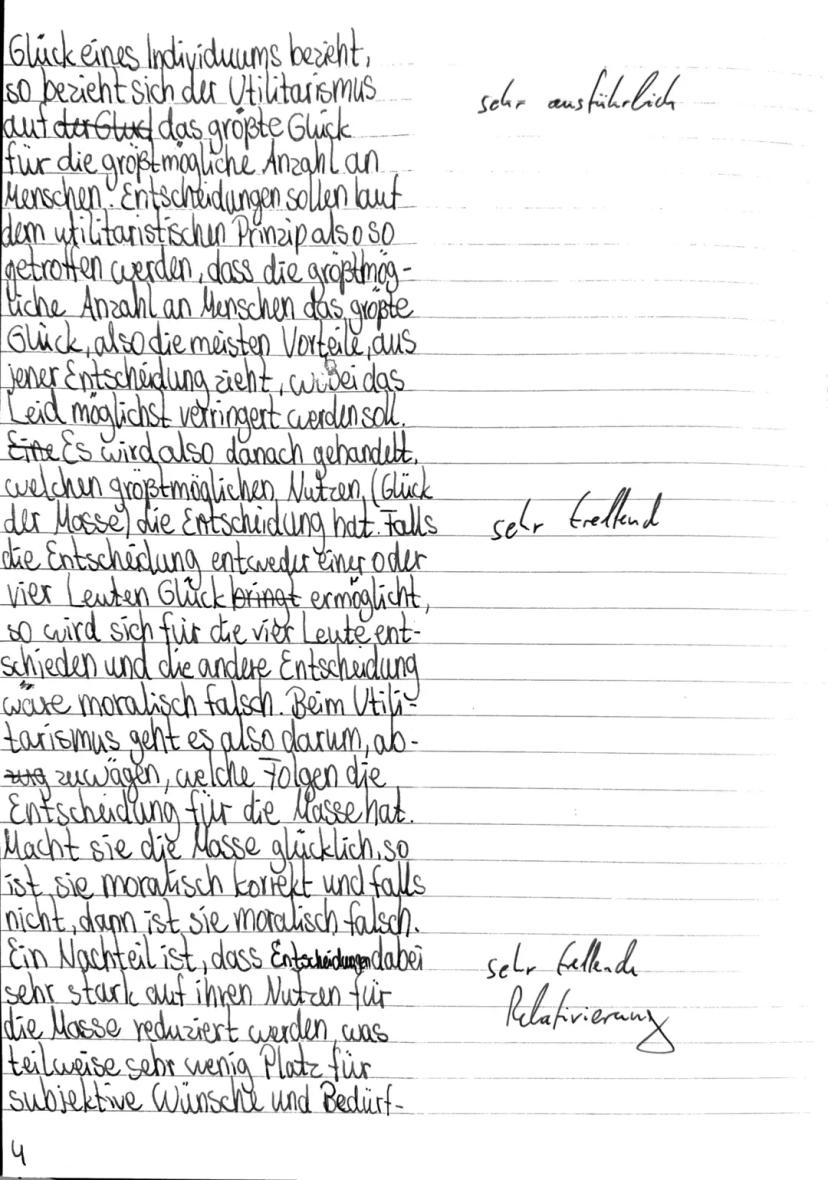 Glück eines Individuums bezieht,
so bezieht sich der Utilitarismus
sehr ausführlich
auf der Glück das größte Glück
für die größtmögliche Anzahl an
Menschen. Entscheidungen sollen laut
dem utilitaristischen Prinzip also so
getroffen werden, dass die größtmög-
liche Anzahl an Menschen das größte
Glück, also die meisten Vorteile, aus
jener Entscheidung zieht, wobei das
Leid möglichst verringert werden soll.
Eine Es wird also danach gehandelt,
welchen größtmöglichen Nutzen (Glück
der Masse) die Entscheidung hat. Falls
sehr treffend
die Entscheidung entweder einer oder
vier Leuten Glück bringt ermöglicht,
so wird sich für die vier Leute ent-
schieden und die andere Entscheidung
wäre moralisch falsch. Beim Utili-
tarismus geht es also darum, ab-
zug zuwägen, welche Folgen die
Entscheidung für die Masse hat.
Macht sie die Masse glücklich, so
ist sie moralisch korrekt und falls
nicht, dann ist sie moralisch falsch.
Ein Nachteil ist, dass Entscheidungen dabei
sehr treffende
sehr stark auf ihren Nutzen für
Relativierung
die Masse reduziert werden, was
teilweise sehr wenig Platz für
subjektive Wünsche und Bedürf-
4